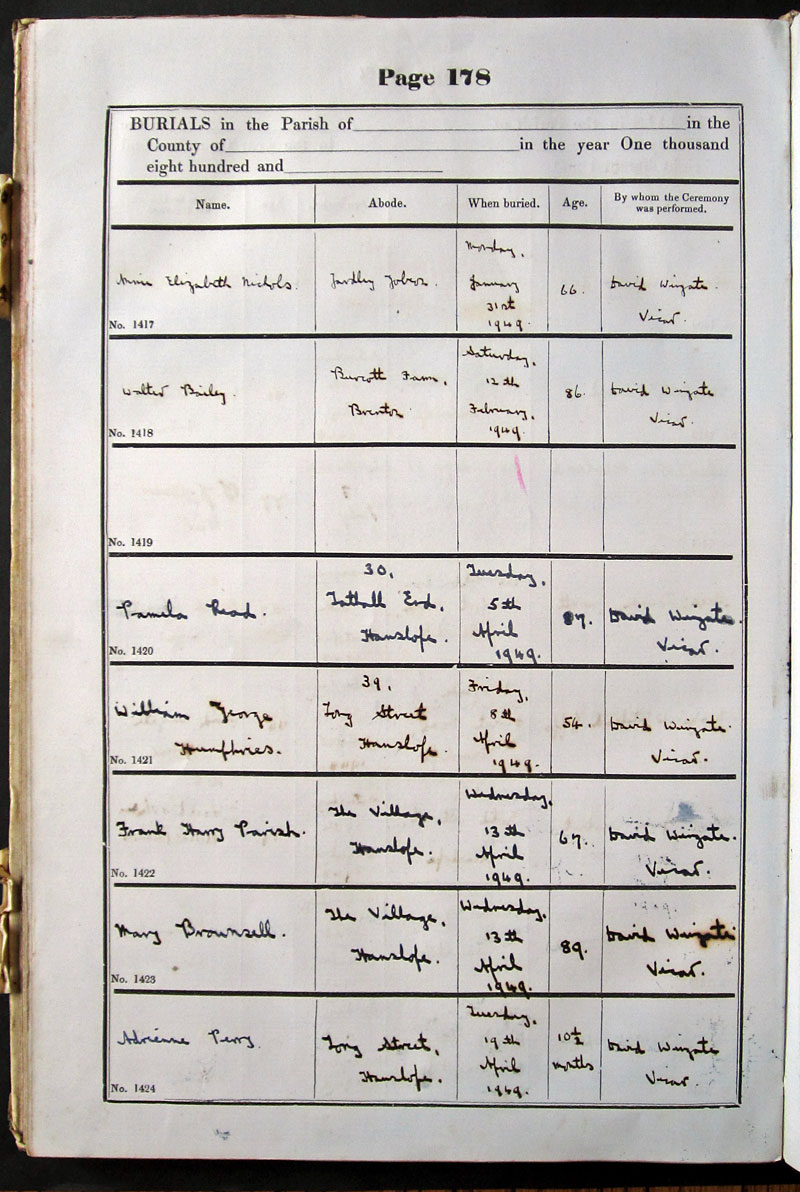 Page 178
BURIALS in the Parish of in the
County of in the year One thousand
eight hundred and
Name. Abode. When buried. Age. By whom the Ceremony
was performed.
Monday,
Annie Elizabeth Nichols. Yardley Gobion. January 66. David Wingate.
31st Vicar.
No. 1417 1949.
Saturday,
Walter Bailey. Burcott Farm, 12th 86. David Wingate
February, Vicar.
No. 1418 1949.
No. 1419
30, Tuesday,
Pamela Read. Tathall End, 5th 87. David Wingate.
Hanslope. April Vicar.
No. 1420 1949.
39, Friday,
William George Long Street 8th 54. David Wingate.
Humphries. Hanslope. April Vicar.
No. 1421 1949.
Wednesday,
Frank Harry Parish. The Village, 13th 67. David Wingate.
Hanslope. April Vicar.
No. 1422 1949.
Wednesday,
Mary Brownsell. The Village, 13th 89. David Wingate
Hanslope. April Vicar.
No. 1423 1949.
Tuesday,
Adrienne Perry. Long Street, 19th 10½ David Wingate
Hanslope. April months Vicar.
No. 1424 1949.